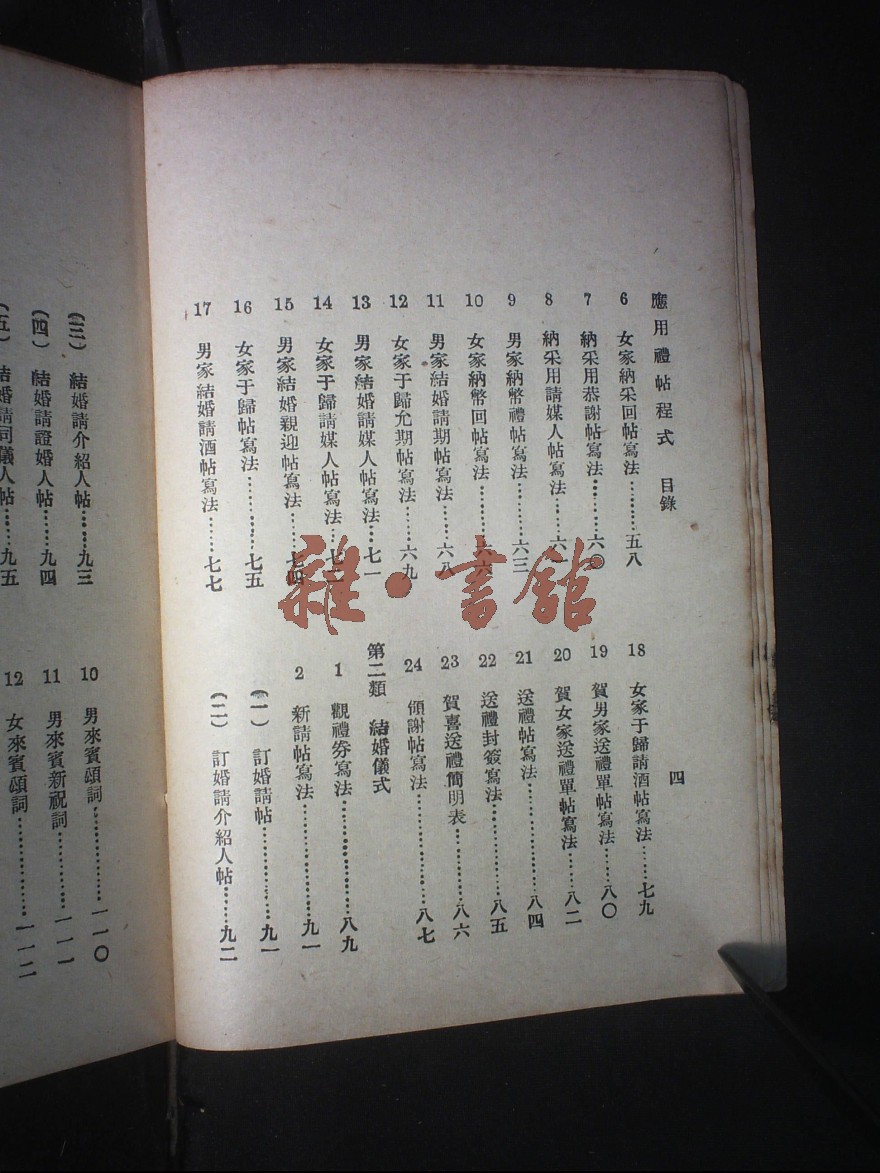 應用禮帖程式 目錄 四
6 女家納采回帖寫法………五八
7 納采用恭謝帖寫法………六〇
8 納采用請媒人帖寫法……六
9 男家納幣禮帖寫法………六三
10 女家納幣回帖寫法………六六
11 男家結婚請期帖寫法……六八
12 女家于歸允期帖寫法……六九
13 男家結婚請媒人帖寫法…七一
14 女家于歸請媒人帖寫法…七
15 男家結婚親迎帖寫法……七四
16 女家于歸帖寫法…………七五
17 男家結婚請酒帖寫法……七七
18 女家于歸請酒帖寫法……七九
19 賀男家送禮單帖寫法……八〇
20 賀女家送禮單帖寫法……八二
21 送禮帖寫法………………八四
22 送禮封簽寫法……………八五
23 賀喜送禮簡明表…………八六
24 領謝帖寫法………………八七
第二類 結婚儀式
1 觀禮券寫法………………八九
2 新請帖寫法………………九一
(一) 訂婚請帖……………九一
(二) 訂婚請介紹人帖……九二
(三) 結婚請介紹人帖……九三
(四) 結婚請證婚人帖……九四
(五) 結婚請司儀人帖……九五
10 男來賓頌詞……………一一〇
11 男來賓新祝詞…………一一一
12 女來賓頌詞……………一一二
雜·書館